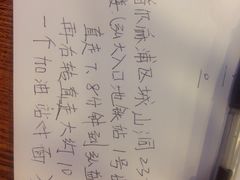 首尔麻浦区城山洞23
楼(弘大入口地铁站1号出
直走7、8分钟到
再右转直走大约10
一个加油站对面